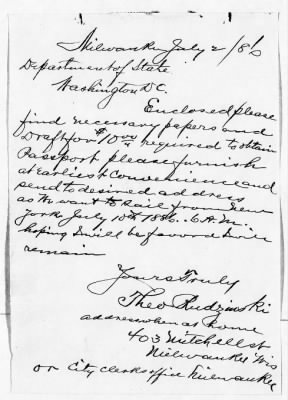 Milwaukee July 2/86
Department of State
Washington DC.
Enclosed please
find necessary papers and
Draft for $10 required to obtain
Passport please furnish
at Earliest Convenience and
send to desired address
as We want to Sail from New
York July 10th 1886. 6 A.M.
hoping I will be favord I will
remain
Yours Truly
Theo Rudzinski
address when at Home
403 Mitchell st
Milwaukee Wis
or City clerks office Milwaukee